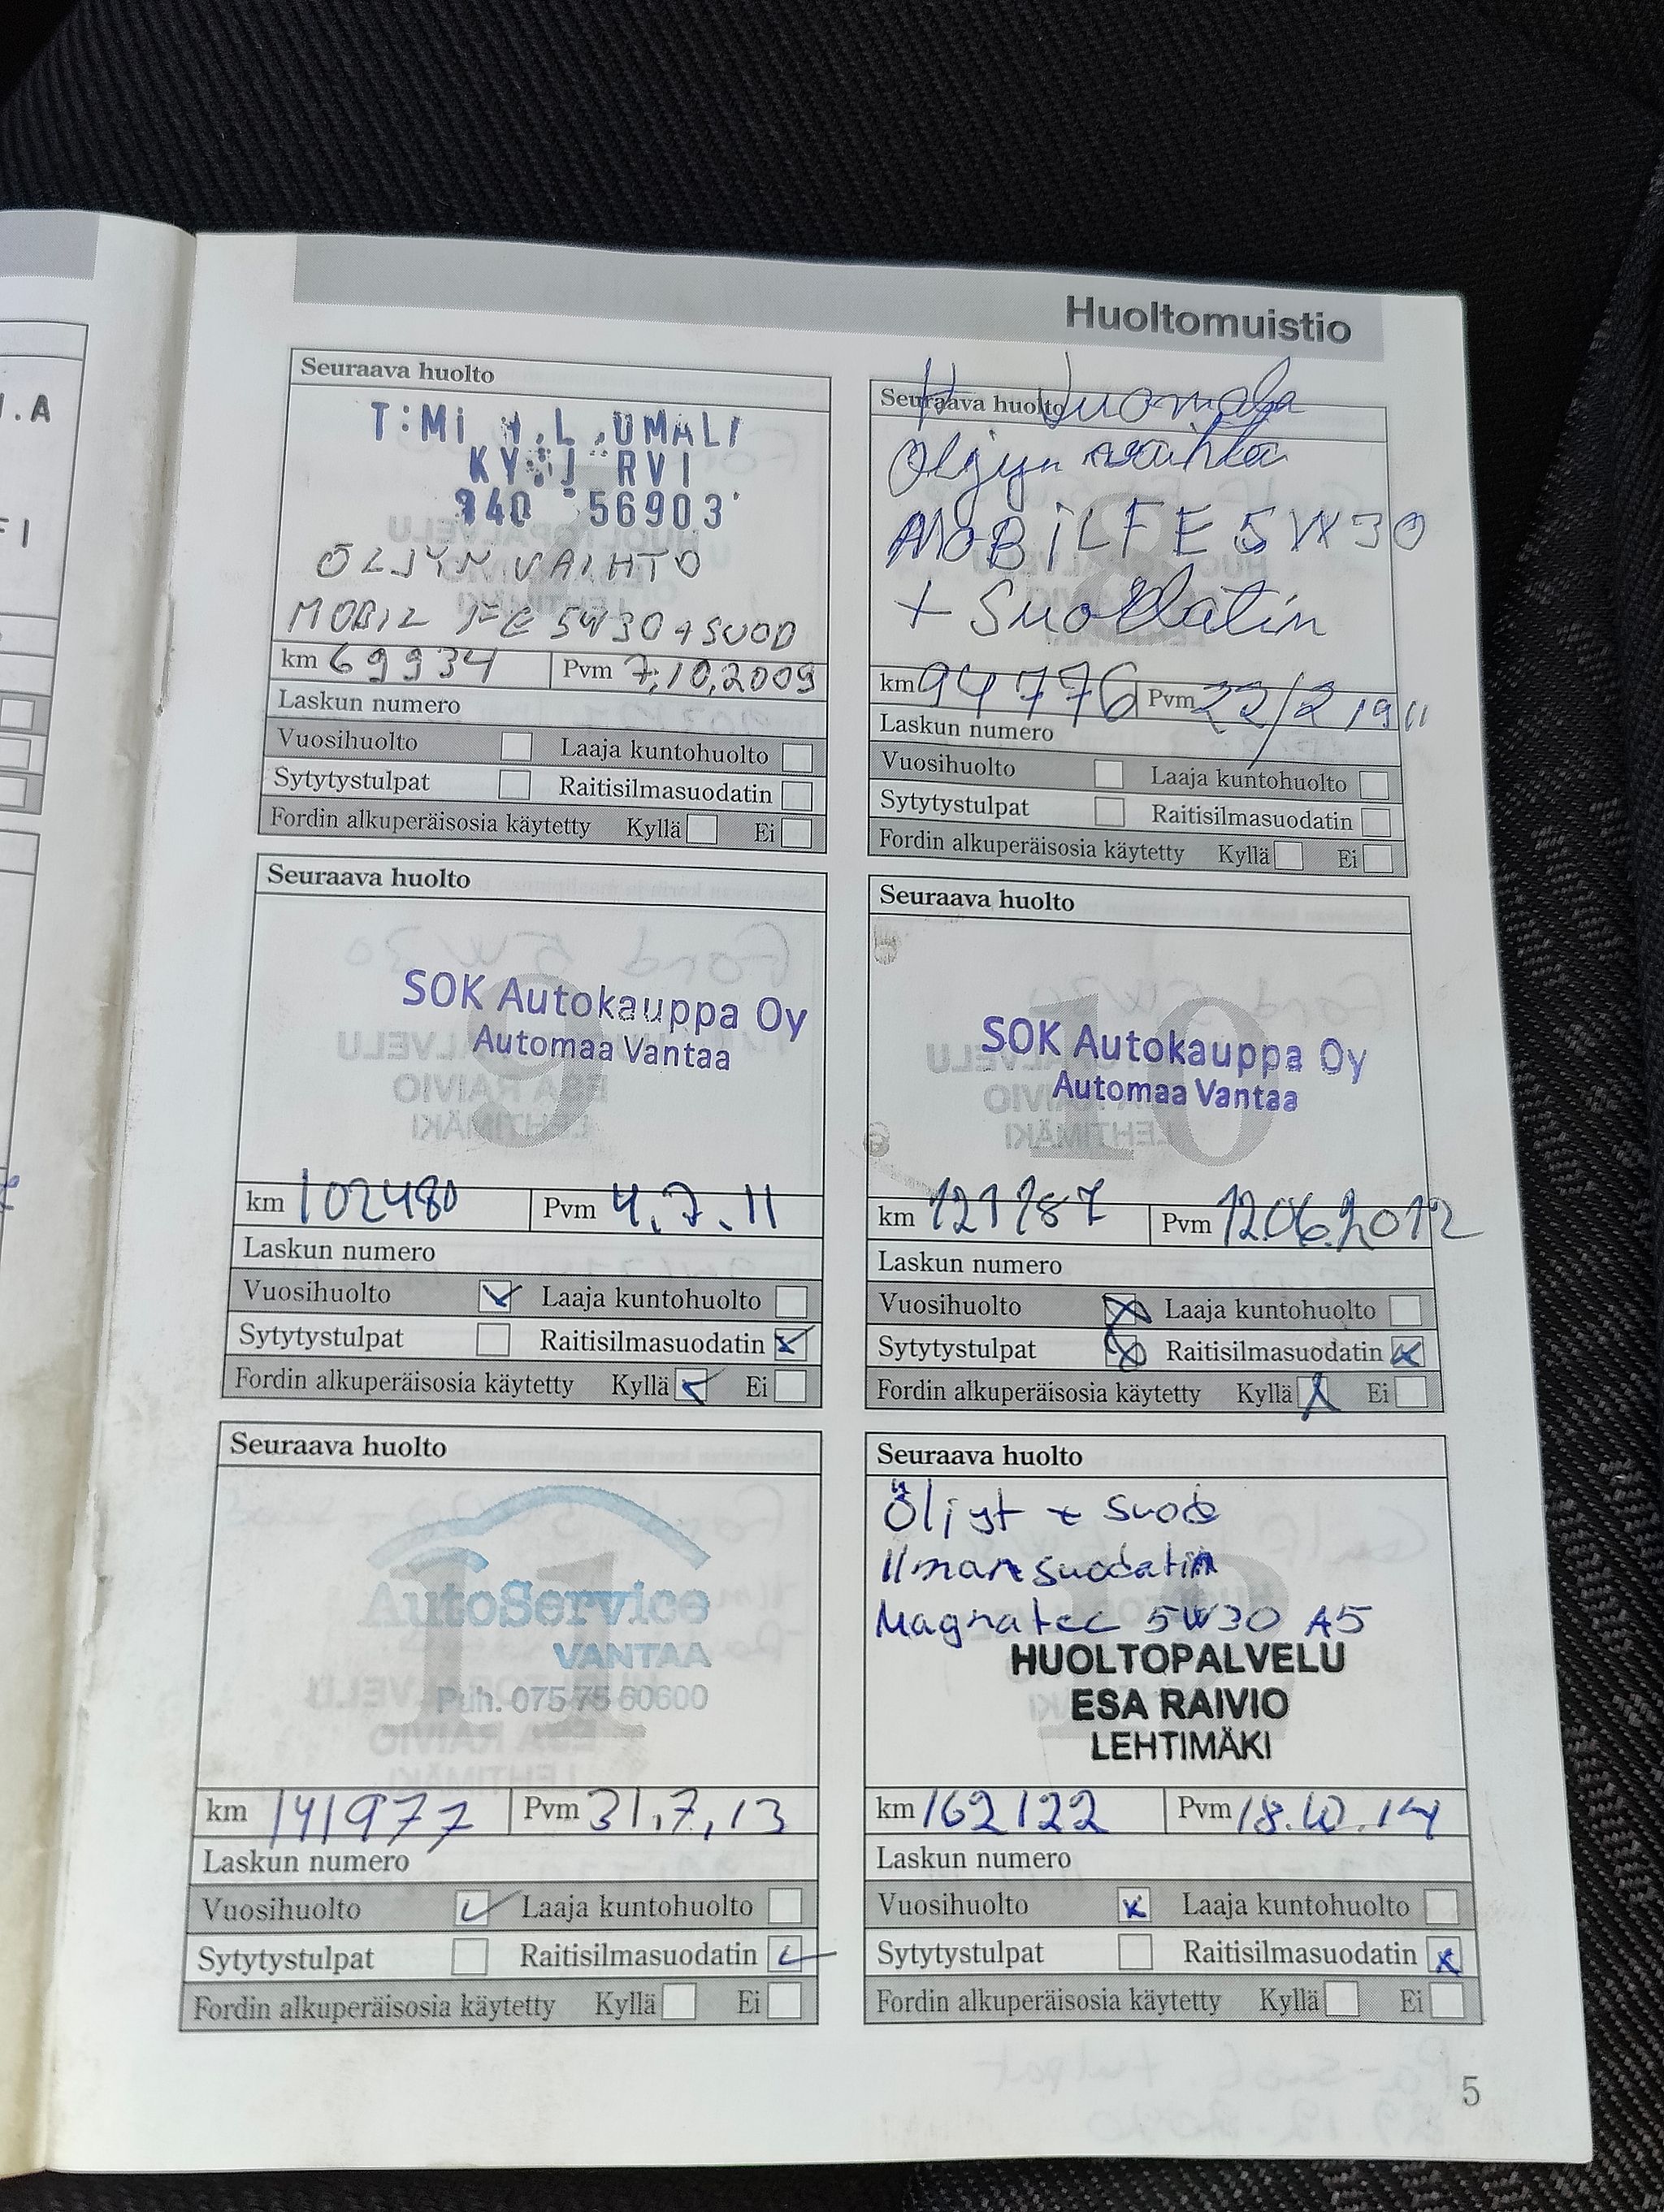 Huoltomuistio
Seuraava huolto
T:Mi
940 56903
ÖLJYN VAIHTO
MOBIL FE 5W30 + SUOD
km 69934 Pvm 7.10.2009
Laskun numero
Vuosihuolto Laaja kuntohuolto
Sytytystulpat Raitisilmasuodatin
Fordin alkuperäisosia käytetty Kyllä Ei
Seuraava huolto
Öljyn
MOBIL FE 5W30
+ Suodatin
km 94776 Pvm 22/2
Laskun numero
Vuosihuolto Laaja kuntohuolto
Sytytystulpat Raitisilmasuodatin
Fordin alkuperäisosia käytetty Kyllä Ei
Seuraava huolto
9
SOK Autokauppa Oy
Automaa Vantaa
km 102480 Pvm 4.7.11
Laskun numero
Vuosihuolto Laaja kuntohuolto
Sytytystulpat Raitisilmasuodatin
Fordin alkuperäisosia käytetty Kyllä Ei
Seuraava huolto
10
SOK Autokauppa Oy
Automaa Vantaa
km 121787 Pvm 12.06.2012
Laskun numero
Vuosihuolto Laaja kuntohuolto
Sytytystulpat Raitisilmasuodatin
Fordin alkuperäisosia käytetty Kyllä Ei
Seuraava huolto
11
AutoService
VANTAA
Puh. 075 75 60600
km 141977 Pvm 31.7.13
Laskun numero
Vuosihuolto Laaja kuntohuolto
Sytytystulpat Raitisilmasuodatin
Fordin alkuperäisosia käytetty Kyllä Ei
Seuraava huolto
Öljyt + suod
Ilmansuodatin
Magnatec 5W30 A5
HUOLTOPALVELU
ESA RAIVIO
LEHTIMÄKI
km 162122 Pvm 18.10.14
Laskun numero
Vuosihuolto Laaja kuntohuolto
Sytytystulpat Raitisilmasuodatin
Fordin alkuperäisosia käytetty Kyllä Ei
5